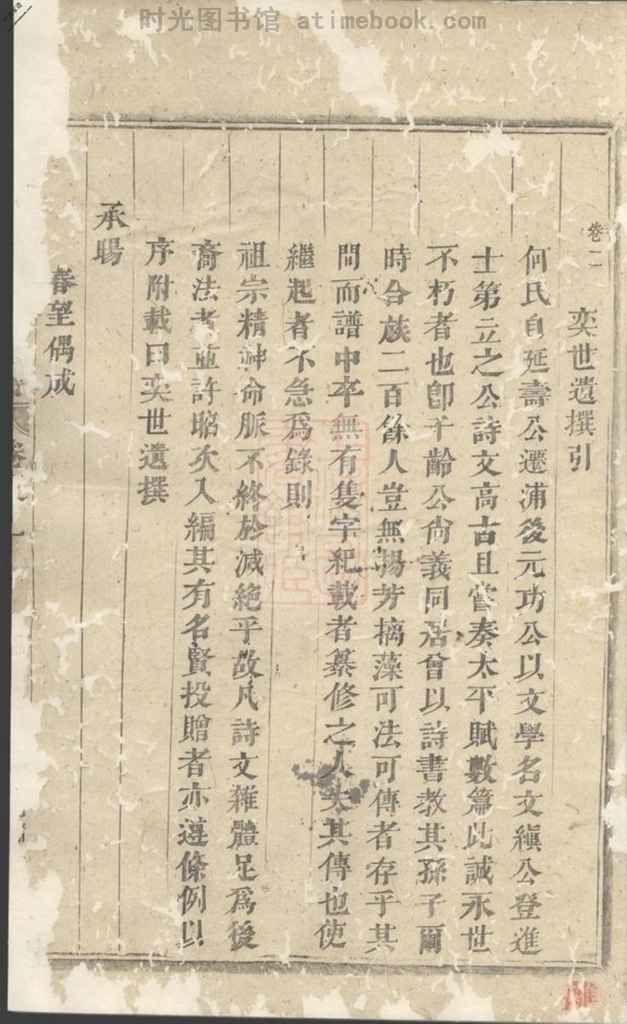 时光图书馆 atimebook.com
卷二
奕世遺撰引
何氏自延壽公遷浦後元功公以文學名文縝公登進
士第立之公詩文高古且嘗奏太平賦數篇此誠永世
不朽者也卽千齡公尚義同居曾以詩書教其孫子爾
時合族二百餘人豈無揚芳摛藻可法可傳者存乎其
間而譜中卒無有隻字紀載者纂修之人失其傳也使
繼起者不急爲錄則
祖宗精神命脈不終於滅絕乎故凡詩文雜體足爲後
裔法者並許昭次入編其有名賢投贈者亦遵條例以
序附載曰奕世遺撰
承暘
春望偶成